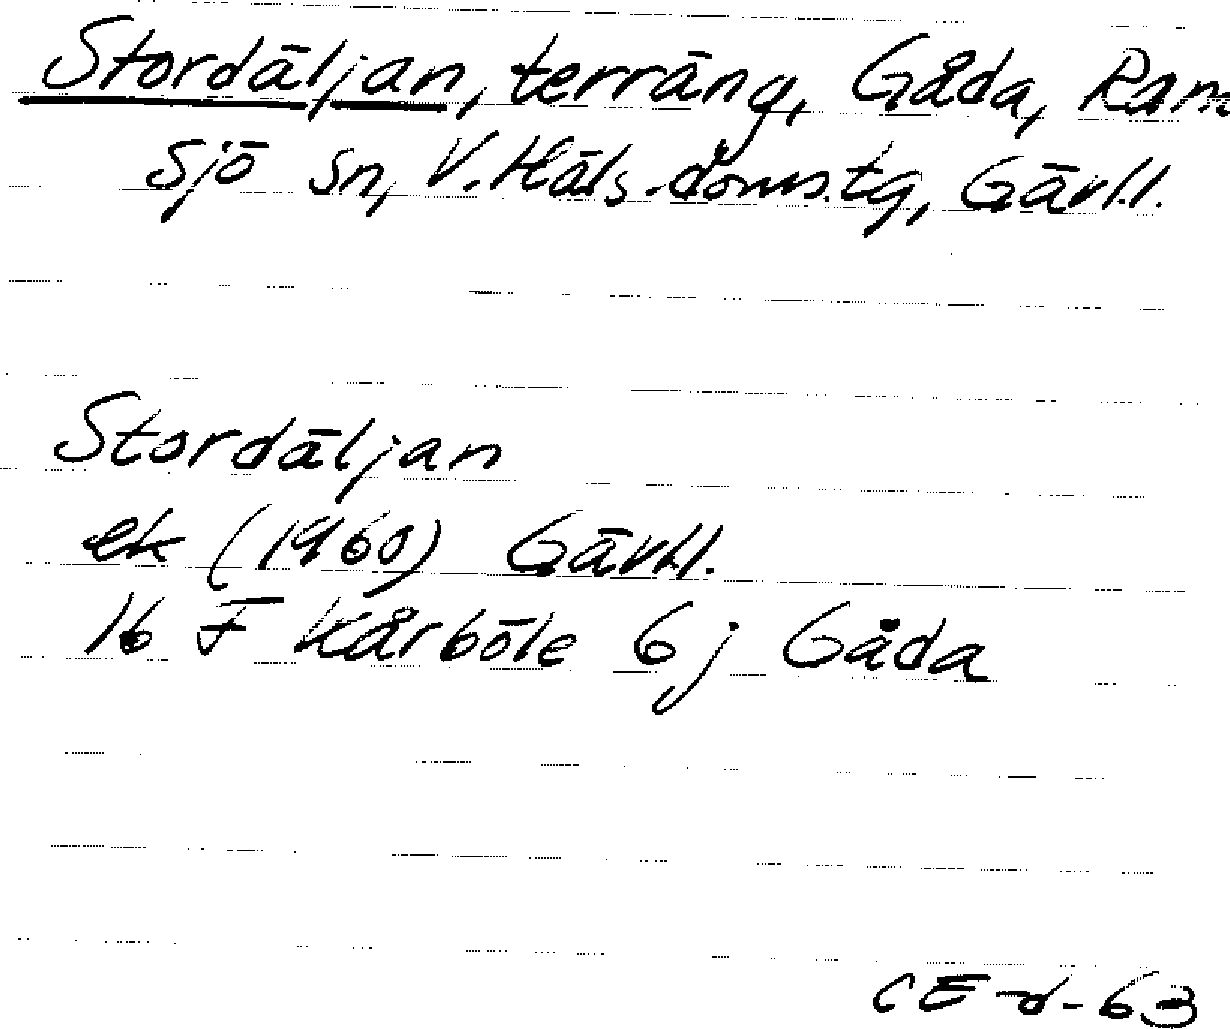 Stordäljan, terräng, Gåda, Ram
sjö sn, V. Häls. doms.tg, Gävl.l.
Stordäljan
ek (1960) Gävl.l.
16 F Kårböle 6 j Gåda
CE-d-63